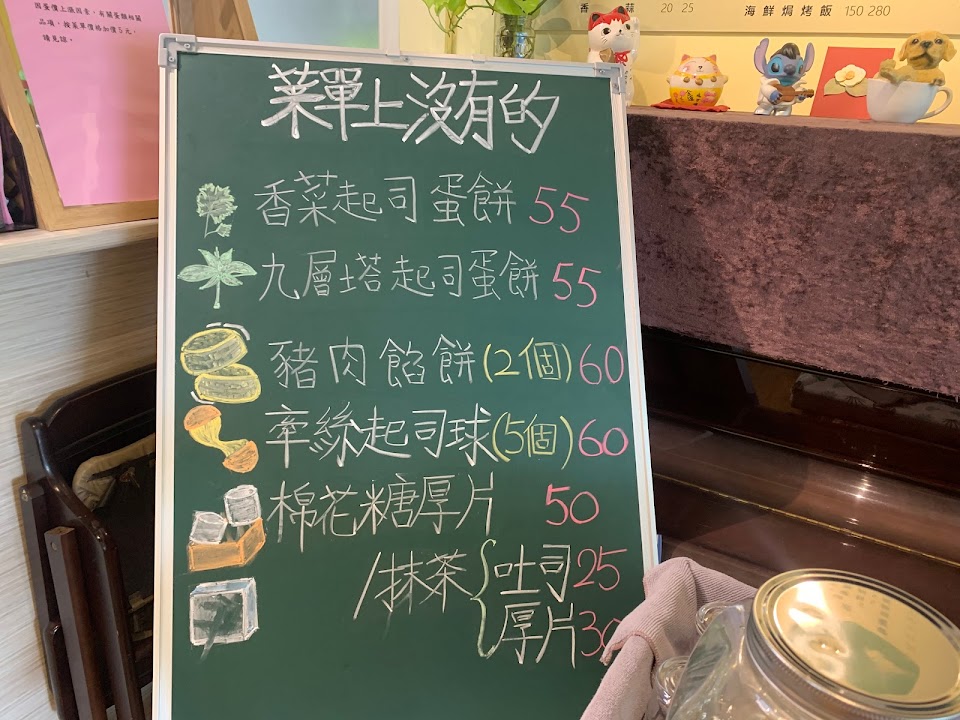 因蛋價上漲因素，有關蛋類相關
品項，按菜單價格加價5元，
請見諒。
香 蒜 20 25
海鮮焗烤飯 150 280
菜單上沒有的
香菜起司蛋餅 55
九層塔起司蛋餅 55
豬肉餡餅(2個) 60
牽絲起司球(5個) 60
棉花糖厚片 50
/抹茶{吐司 25
厚片 30